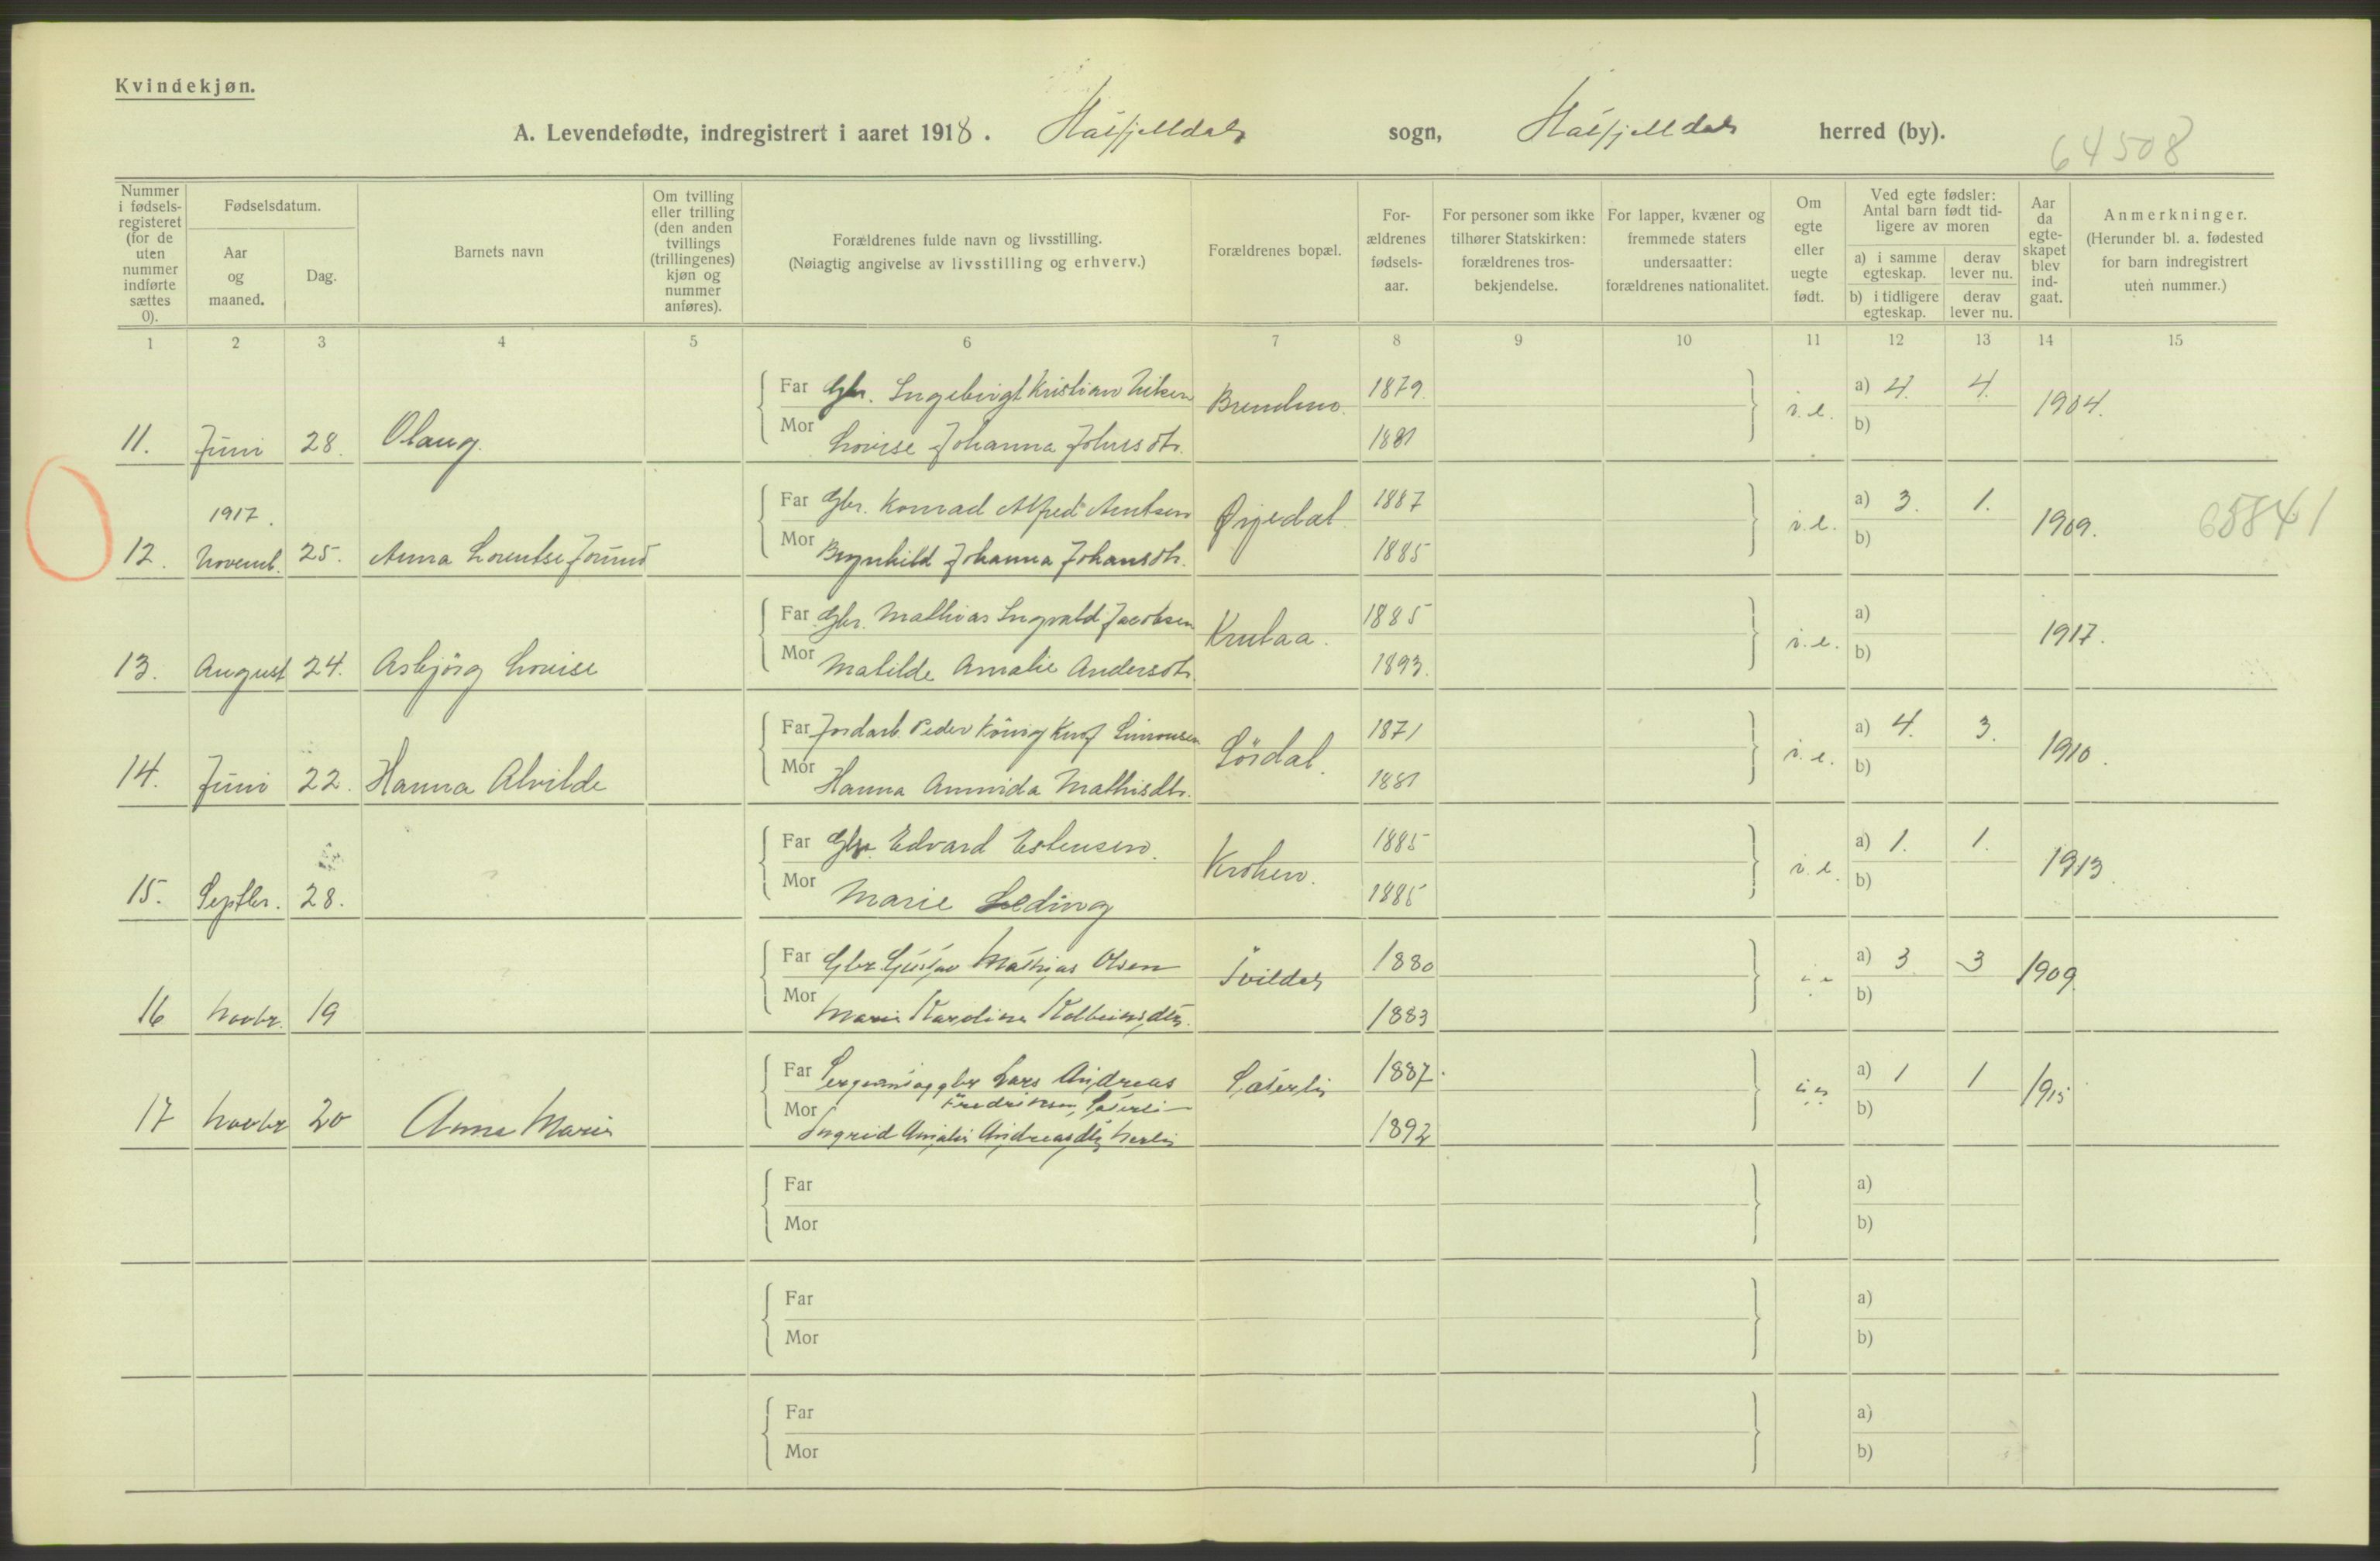 Kvindekjøn.
A. Levendefødte, indregistrert i aaret 1918. Hatfjelldal sogn, Hatfjelldal herred (by).
64508
Nummer i fødsels-registeret (for de uten nummer indførte sættes 0).
Fødselsdatum.
Aar og maaned.
Dag.
Barnets navn
Om tvilling eller trilling (den anden tvillings (trillingenes) kjøn og nummer anføres).
Forældrenes fulde navn og livsstilling.
(Nøiagtig angivelse av livsstilling og erhverv.)
Forældrenes bopæl.
For-ældrenes fødsels-aar.
For personer som ikke tilhører Statskirken: forældrenes tros-bekjendelse.
For lapper, kvæner og fremmede staters undersaatter: forældrenes nationalitet.
Om egte eller uegte født.
Ved egte fødsler: Antal barn født tid-ligere av moren
a) i samme egteskap.
derav lever nu.
b) i tidligere egteskap.
derav lever nu.
Aar da egte-skapet blev ind-gaat.
Anmerkninger.
(Herunder bl. a. fødested for barn indregistrert uten nummer.)
1 2 3 4 5 6 7 8 9 10 11 12 13 14 15
Far Gbr. Ingebrigt Kristian Nilsen Brendmo. 1879. a) 4. 4. 1904.
11. Juni 28. Olaug. i. e.
Mor Lovise Johanna Johnsdtr. 1881 b)
1917.
Far Gbr. Konrad Alfred Arntsen 1887 a) 3. 1. 1909. 65841
12. Novemb. 25. Anna Lorentse Jorund i. e.
Mor Brynhild Johanna Johansdtr. 1885 b)
Far Gbr. Mathias Ingvald Jacobsen Krutaa. 1885 a) 1917.
13. August 24. Asbjörg Lovise i. e.
Mor Matilde Amalie Andersdtr. 1893. b)
Far Jordarb. Peder König Simonsen Sördal. 1871 a) 4. 3. 1910.
14. Juni 22. Hanna Alvilde i. e.
Mor Hanna Mathisdtr. 1881 b)
Far Gbr. Edvard Estensen. Kroken. 1885 a) 1. 1. 1913.
15. Septbr. 28. i. e.
Mor Marie 1885 b)
Far Gbr Gustav Mathias Olsen 1880 a) 3 3 1909.
16 Novbr. 19
Mor Marie Karoline Kolbeinsdtr. 1883 b)
Far Sergeant og gbr Lars Andreas Sæterli 1887. a) 1 1 1915
Fredriksen, Sæterli
17 Novbr 20 Anna Marie
Mor Ingrid Amalie Andreasdtr 1892 b)
Far a)
Mor b)
Far a)
Mor b)
Far a)
Mor b)